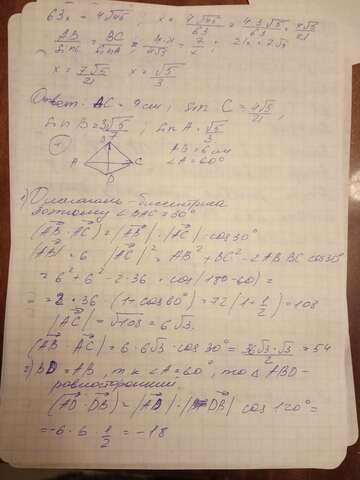 63x = 4√45   x = 4√45/63 = 4·3√5/63 = 4√5/21
AB/sin C = BC/sin A ; 4·x/4√5 = 7/x ; 21x = 7√5
x = 7√5/21   x = √5/3
Ответ: AC = 9 см; sin C = 4√5/21,
sin B = 3√5/7; sin A = √5/3
B
A C AB = 6 см
D ∠A = 60°
1) Диагональ - биссектриса
поэтому ∠BAC = 30°
(AB · AC) = |AB| · |AC| · cos 30°
|AB| = 6 |AC|² = AB² + BC² - 2AB·BC cos
= 6² + 6² - 2·36 · cos(180-60) =
= 2·36 · (1 - cos 60°) = 72(1 + 1/2) = 108
|AC| = √108 = 6√3.
(AB · AC) = 6 · 6√3 · cos 30° = 36√3·√3/2 = 54
BD = AB, т к ∠A = 60°, то Δ ABD -
равносторонний.
(AD · DB) = |AD| · |DB| cos 120° =
= -6 · 6 · 1/2 = -18